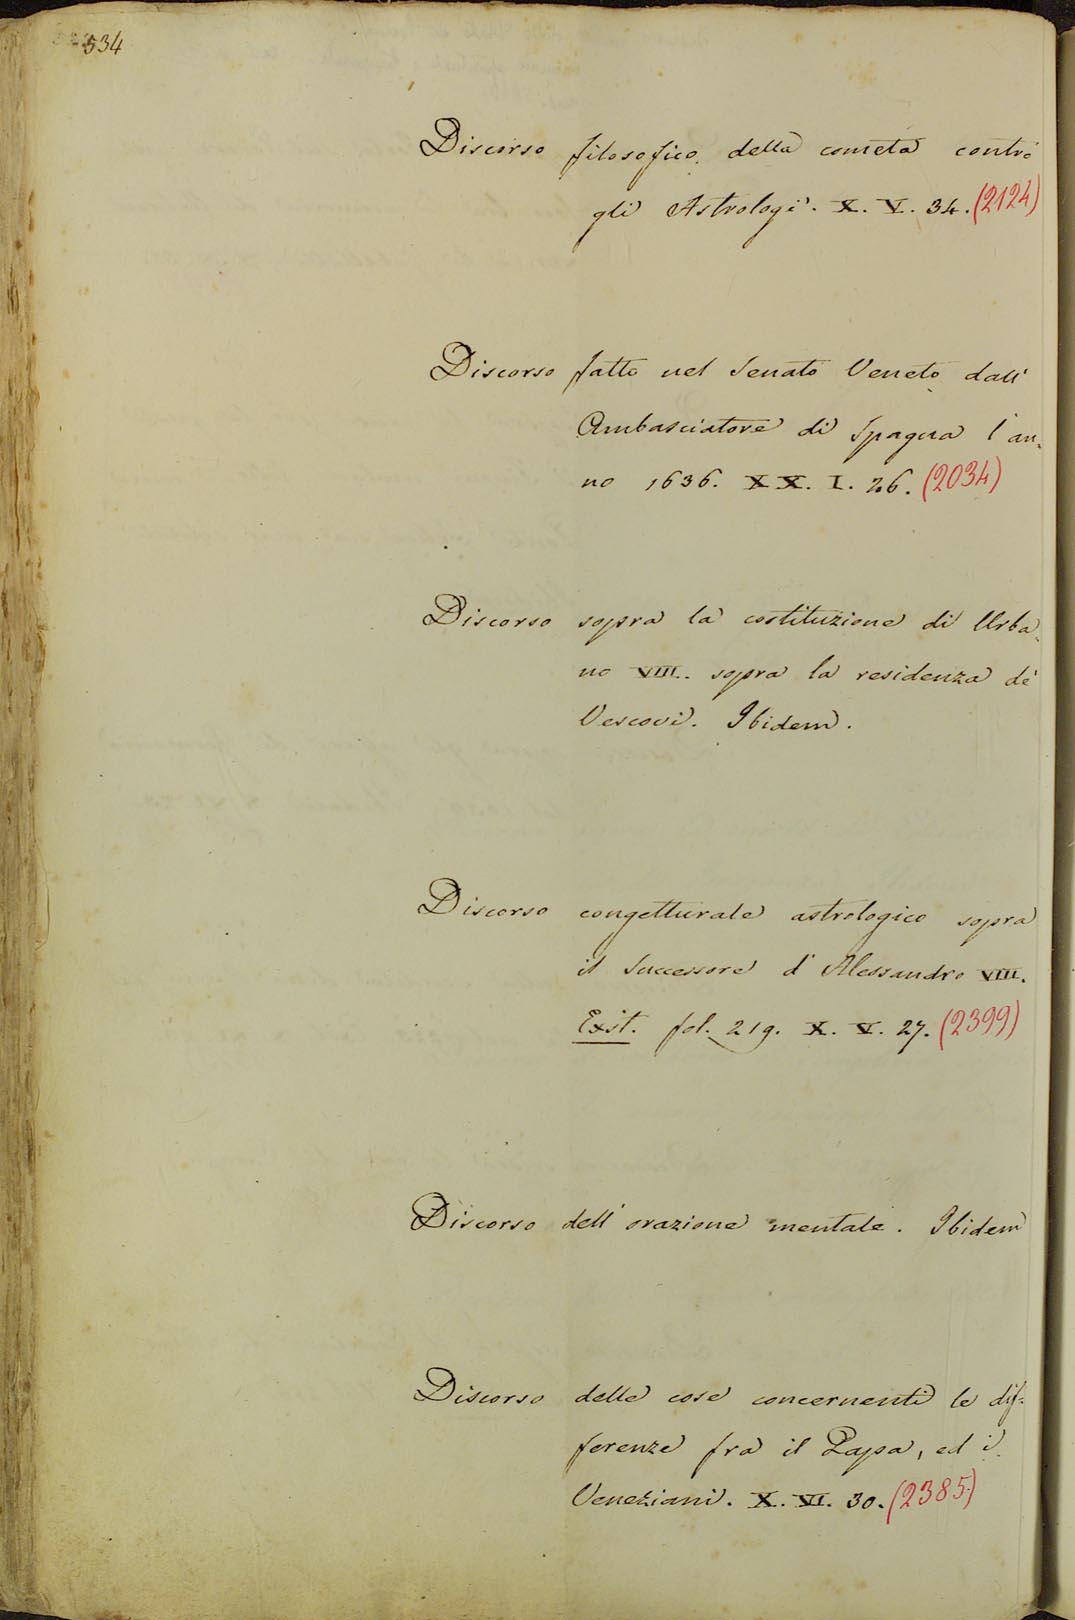 534
Discorso filosofico della cometa contro
gli Astrologi. X. V. 34. (2124)
Discorso fatto nel Senato Veneto dall'
Ambasciatore di Spagna l'an-
no 1636. XX. I. 26. (2034)
Discorso sopra la costituzione di Urba-
no VIII. sopra la residenza de'
Vescovi. Ibidem.
Discorso congetturale astrologico sopra
il Successore d'Alessandro VIII.
Exst. fol. 219. X. V. 27. (2399)
Discorso dell'orazione mentale. Ibidem
Discorso delle cose concernenti le dif-
ferenze fra il Papa, ed i
Veneziani. X. VI. 30. (2385)